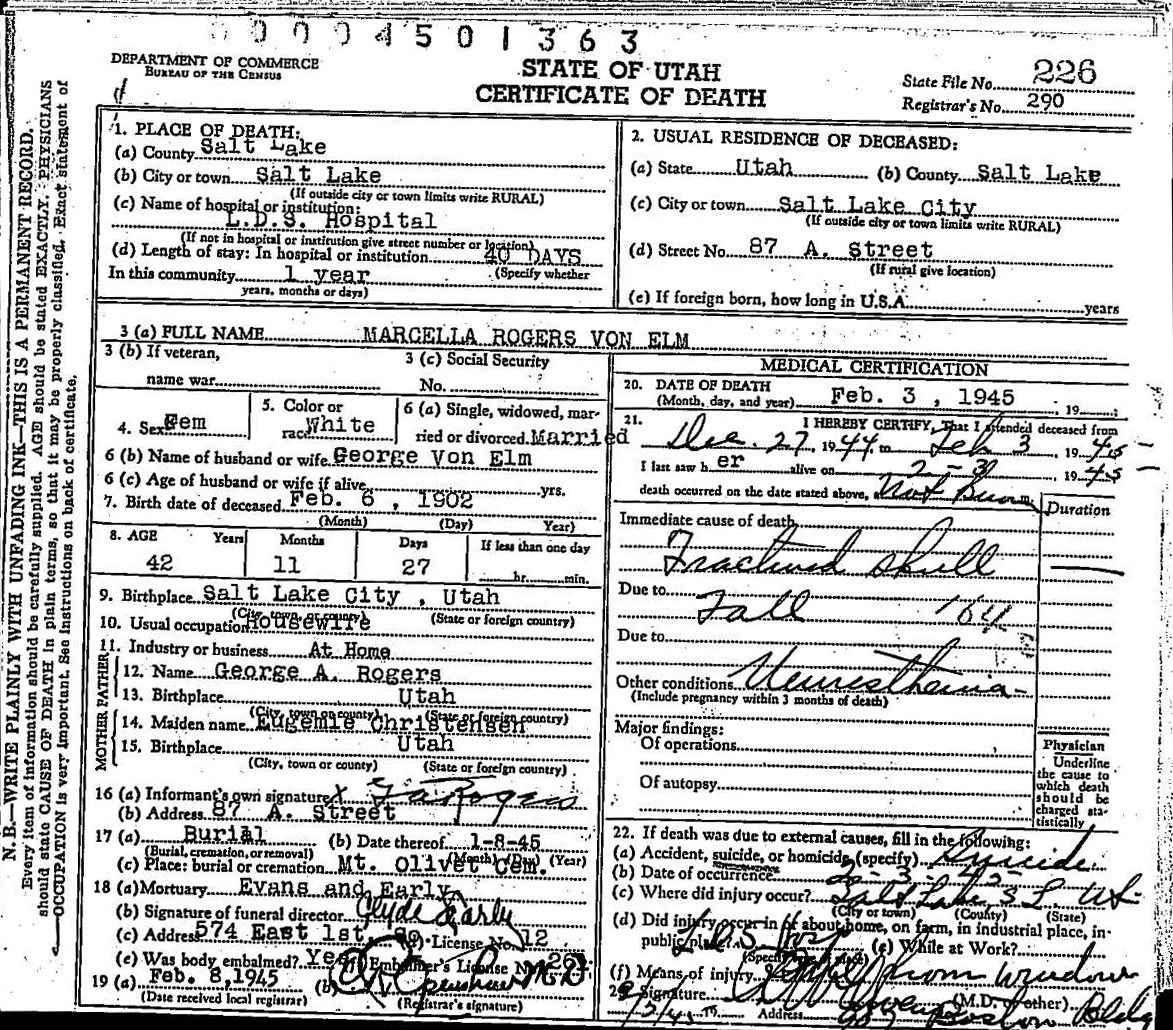 0004501363
DEPARTMENT OF COMMERCE
BUREAU OF THE CENSUS
STATE OF UTAH
CERTIFICATE OF DEATH
State File No. 226
Registrar's No. 290
N. B.—WRITE PLAINLY WITH UNFADING INK—THIS IS A PERMANENT RECORD.
Every item of information should be carefully supplied. AGE should be stated EXACTLY. PHYSICIANS
should state CAUSE OF DEATH in plain terms, so that it may be properly classified. Exact statement of
OCCUPATION is very important. See instructions on back of certificate.
1. PLACE OF DEATH:
(a) County Salt Lake
(b) City or town Salt Lake
(If outside city or town limits write RURAL)
(c) Name of hospital or institution:
L.D.S. Hospital
(If not in hospital or institution give street number or location)
(d) Length of stay: In hospital or institution 40 DAYS
In this community 1 year (Specify whether
years, months or days)
2. USUAL RESIDENCE OF DECEASED:
(a) State Utah (b) County Salt Lake
(c) City or town Salt Lake City
(If outside city or town limits write RURAL)
(d) Street No. 87 A. Street
(If rural give location)
(e) If foreign born, how long in U.S.A. years
3 (a) FULL NAME MARCELLA ROGERS VON ELM
3 (b) If veteran,
name war
3 (c) Social Security
No.
4. Sex Fem
5. Color or
race White
6 (a) Single, widowed, mar-
ried or divorced. Married
6 (b) Name of husband or wife George Von Elm
6 (c) Age of husband or wife if alive yrs.
7. Birth date of deceased Feb. 6, 1902
(Month) (Day) Year)
8. AGE Years Months Days If less than one day
42 11 27 hr. min.
9. Birthplace Salt Lake City, Utah
(City, town, or county) (State or foreign country)
10. Usual occupation Housewife
11. Industry or business At Home
FATHER
12. Name George A. Rogers
13. Birthplace Utah
(City, town or county) (State or foreign country)
MOTHER
14. Maiden name Eugemie Christensen
15. Birthplace Utah
(City, town or county) (State or foreign country)
16 (a) Informant's own signature X Rogers
(b) Address 87 A. Street
17 (a) Burial (b) Date thereof 1-8-45
(Burial, cremation, or removal) (Month) (Day) (Year)
(c) Place: burial or cremation Mt. Olivet Cem.
18 (a) Mortuary Evans and Early
(b) Signature of funeral director Clyde Early
(c) Address 574 East 1st So. License No. 12
(e) Was body embalmed? Yes Embalmer's License No.
19 (a) Feb. 8, 1945 (b) M.D.
(Date received local registrar) (Registrar's signature)
MEDICAL CERTIFICATION
20. DATE OF DEATH
(Month, day, and year) Feb. 3, 1945, 19
21. I HEREBY CERTIFY, That I attended deceased from
Dec. 27, 1944 to Feb 3, 1945
I last saw her alive on 1945
death occurred on the date stated above, at m.
Duration
Immediate cause of death
Fractured skull
Due to Fall
Due to
Other conditions
(Include pregnancy within 3 months of death)
Major findings:
Of operations
Of autopsy
Physician
Underline
the cause to
which death
should be
charged sta-
tistically
22. If death was due to external causes, fill in the following:
(a) Accident, suicide, or homicide (specify) Suicide
(b) Date of occurrence 2-3-45
(c) Where did injury occur? Salt Lake S.L. Ut.
(City or town) (County) (State)
(d) Did injury occur in or about home, on farm, in industrial place, in-
public place? L.D.S. Hosp
(Specify type of place) (e) While at Work?
(f) Means of injury from window
Signature (M.D. or other)
Address Boston Bldg